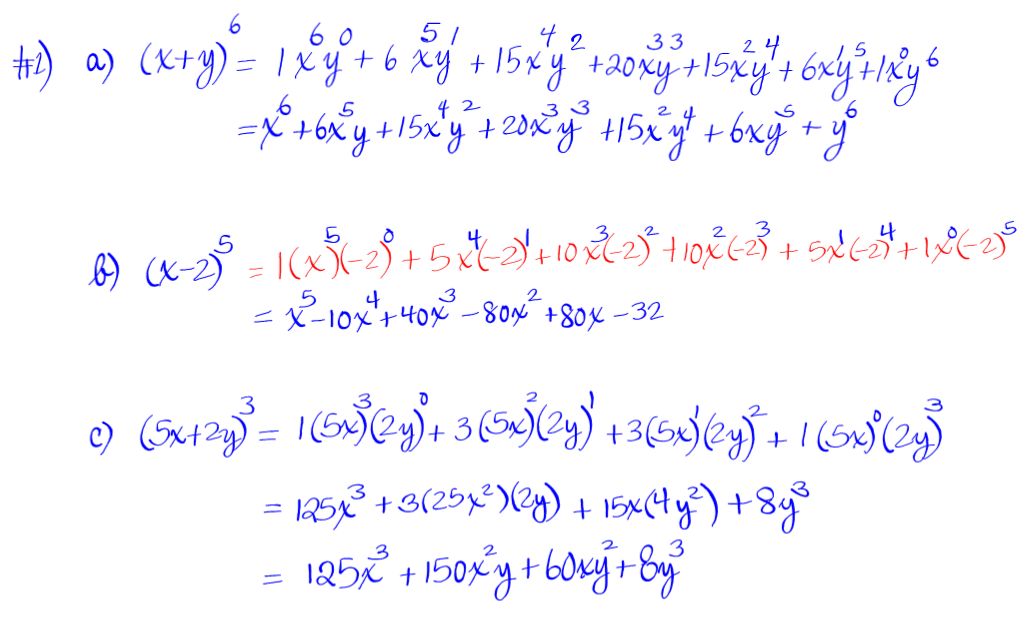 #1) a) (x+y)⁶ = 1x⁶y⁰ + 6x⁵y¹ + 15x⁴y² + 20x³y³ + 15x²y⁴ + 6x¹y⁵ + 1x⁰y⁶
= x⁶ + 6x⁵y + 15x⁴y² + 20x³y³ + 15x²y⁴ + 6xy⁵ + y⁶
b) (x-2)⁵ = 1(x)⁵(-2)⁰ + 5x⁴(-2)¹ + 10x³(-2)² + 10x²(-2)³ + 5x¹(-2)⁴ + 1x⁰(-2)⁵
= x⁵ - 10x⁴ + 40x³ - 80x² + 80x - 32
c) (5x+2y)³ = 1(5x)³(2y)⁰ + 3(5x)²(2y)¹ + 3(5x)¹(2y)² + 1(5x)⁰(2y)³
= 125x³ + 3(25x²)(2y) + 15x(4y²) + 8y³
= 125x³ + 150x²y + 60xy² + 8y³